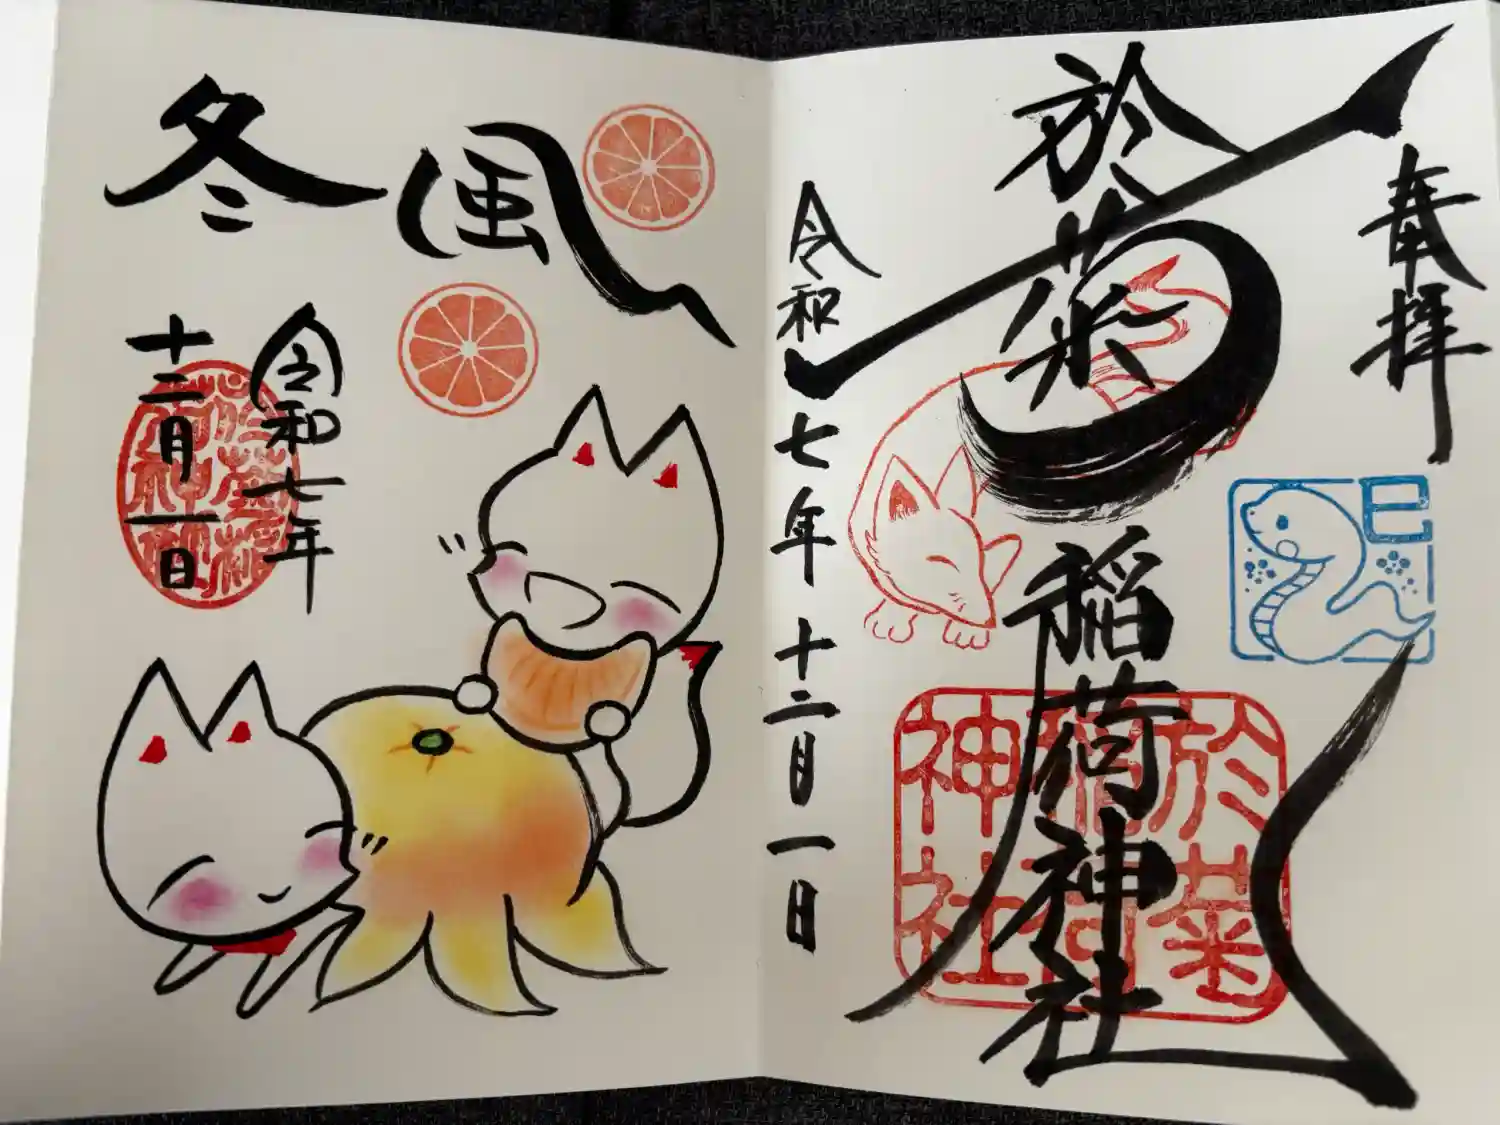 奉拝
於菊稲荷神社
巳
於菊
稲荷
神社
令和七年十二月一日
冬風
令和七年
十二月一日